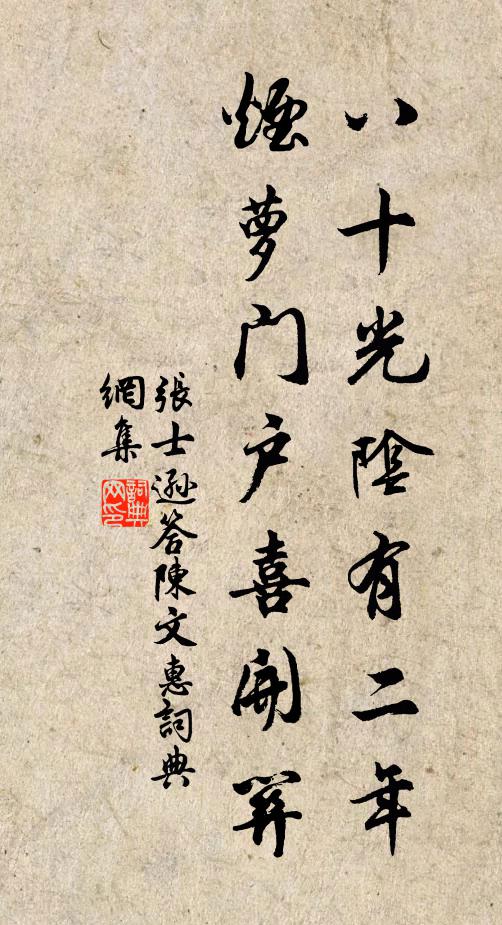 八十光陰有二年
煙萝門户喜開關
張士遜答陳文惠詞典
網集
詞典
网印